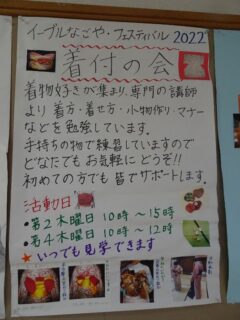 イーブルなごや・フェスティバル 2022
着付の会
着物好きが集まり、専門の講師
より 着方・着せ方・小物作り・マナー
などを勉強しています。
手持ちの物で練習していますので
どなたでも お気軽に どうぞ!!
初めての方でも 皆でサポートします。
活動日
・第2木曜日 10時～15時
・第4木曜日 10時～12時
★いつでも見学できます